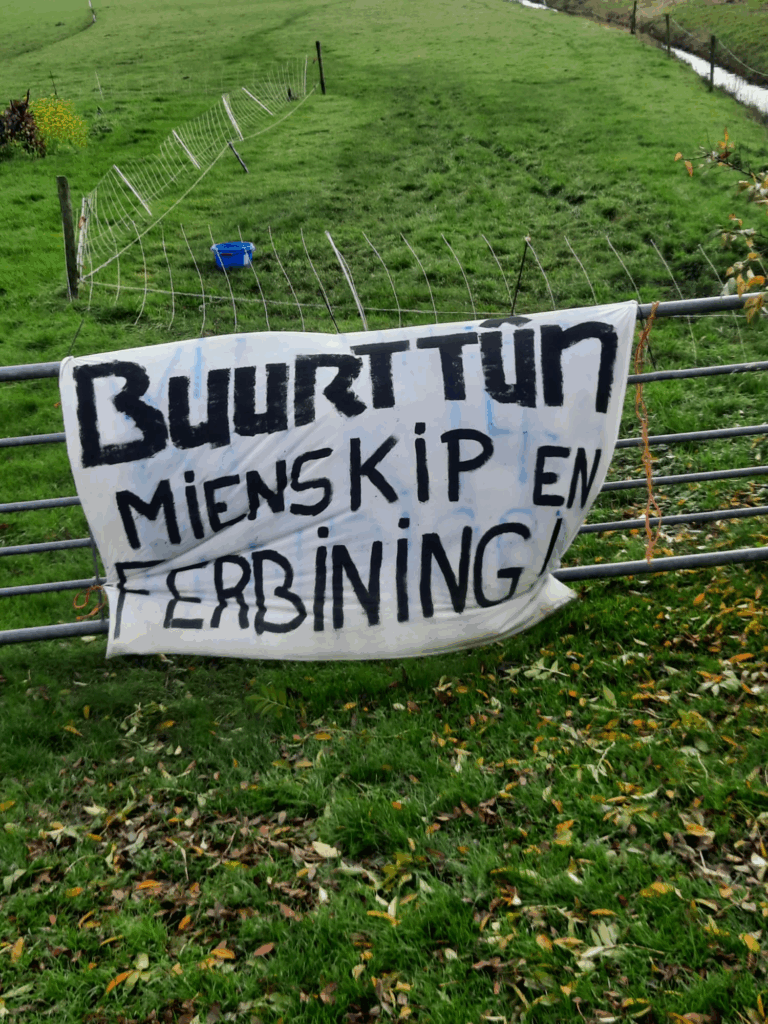 BUURTTÛN
MIENSKIP EN
FERBINING!